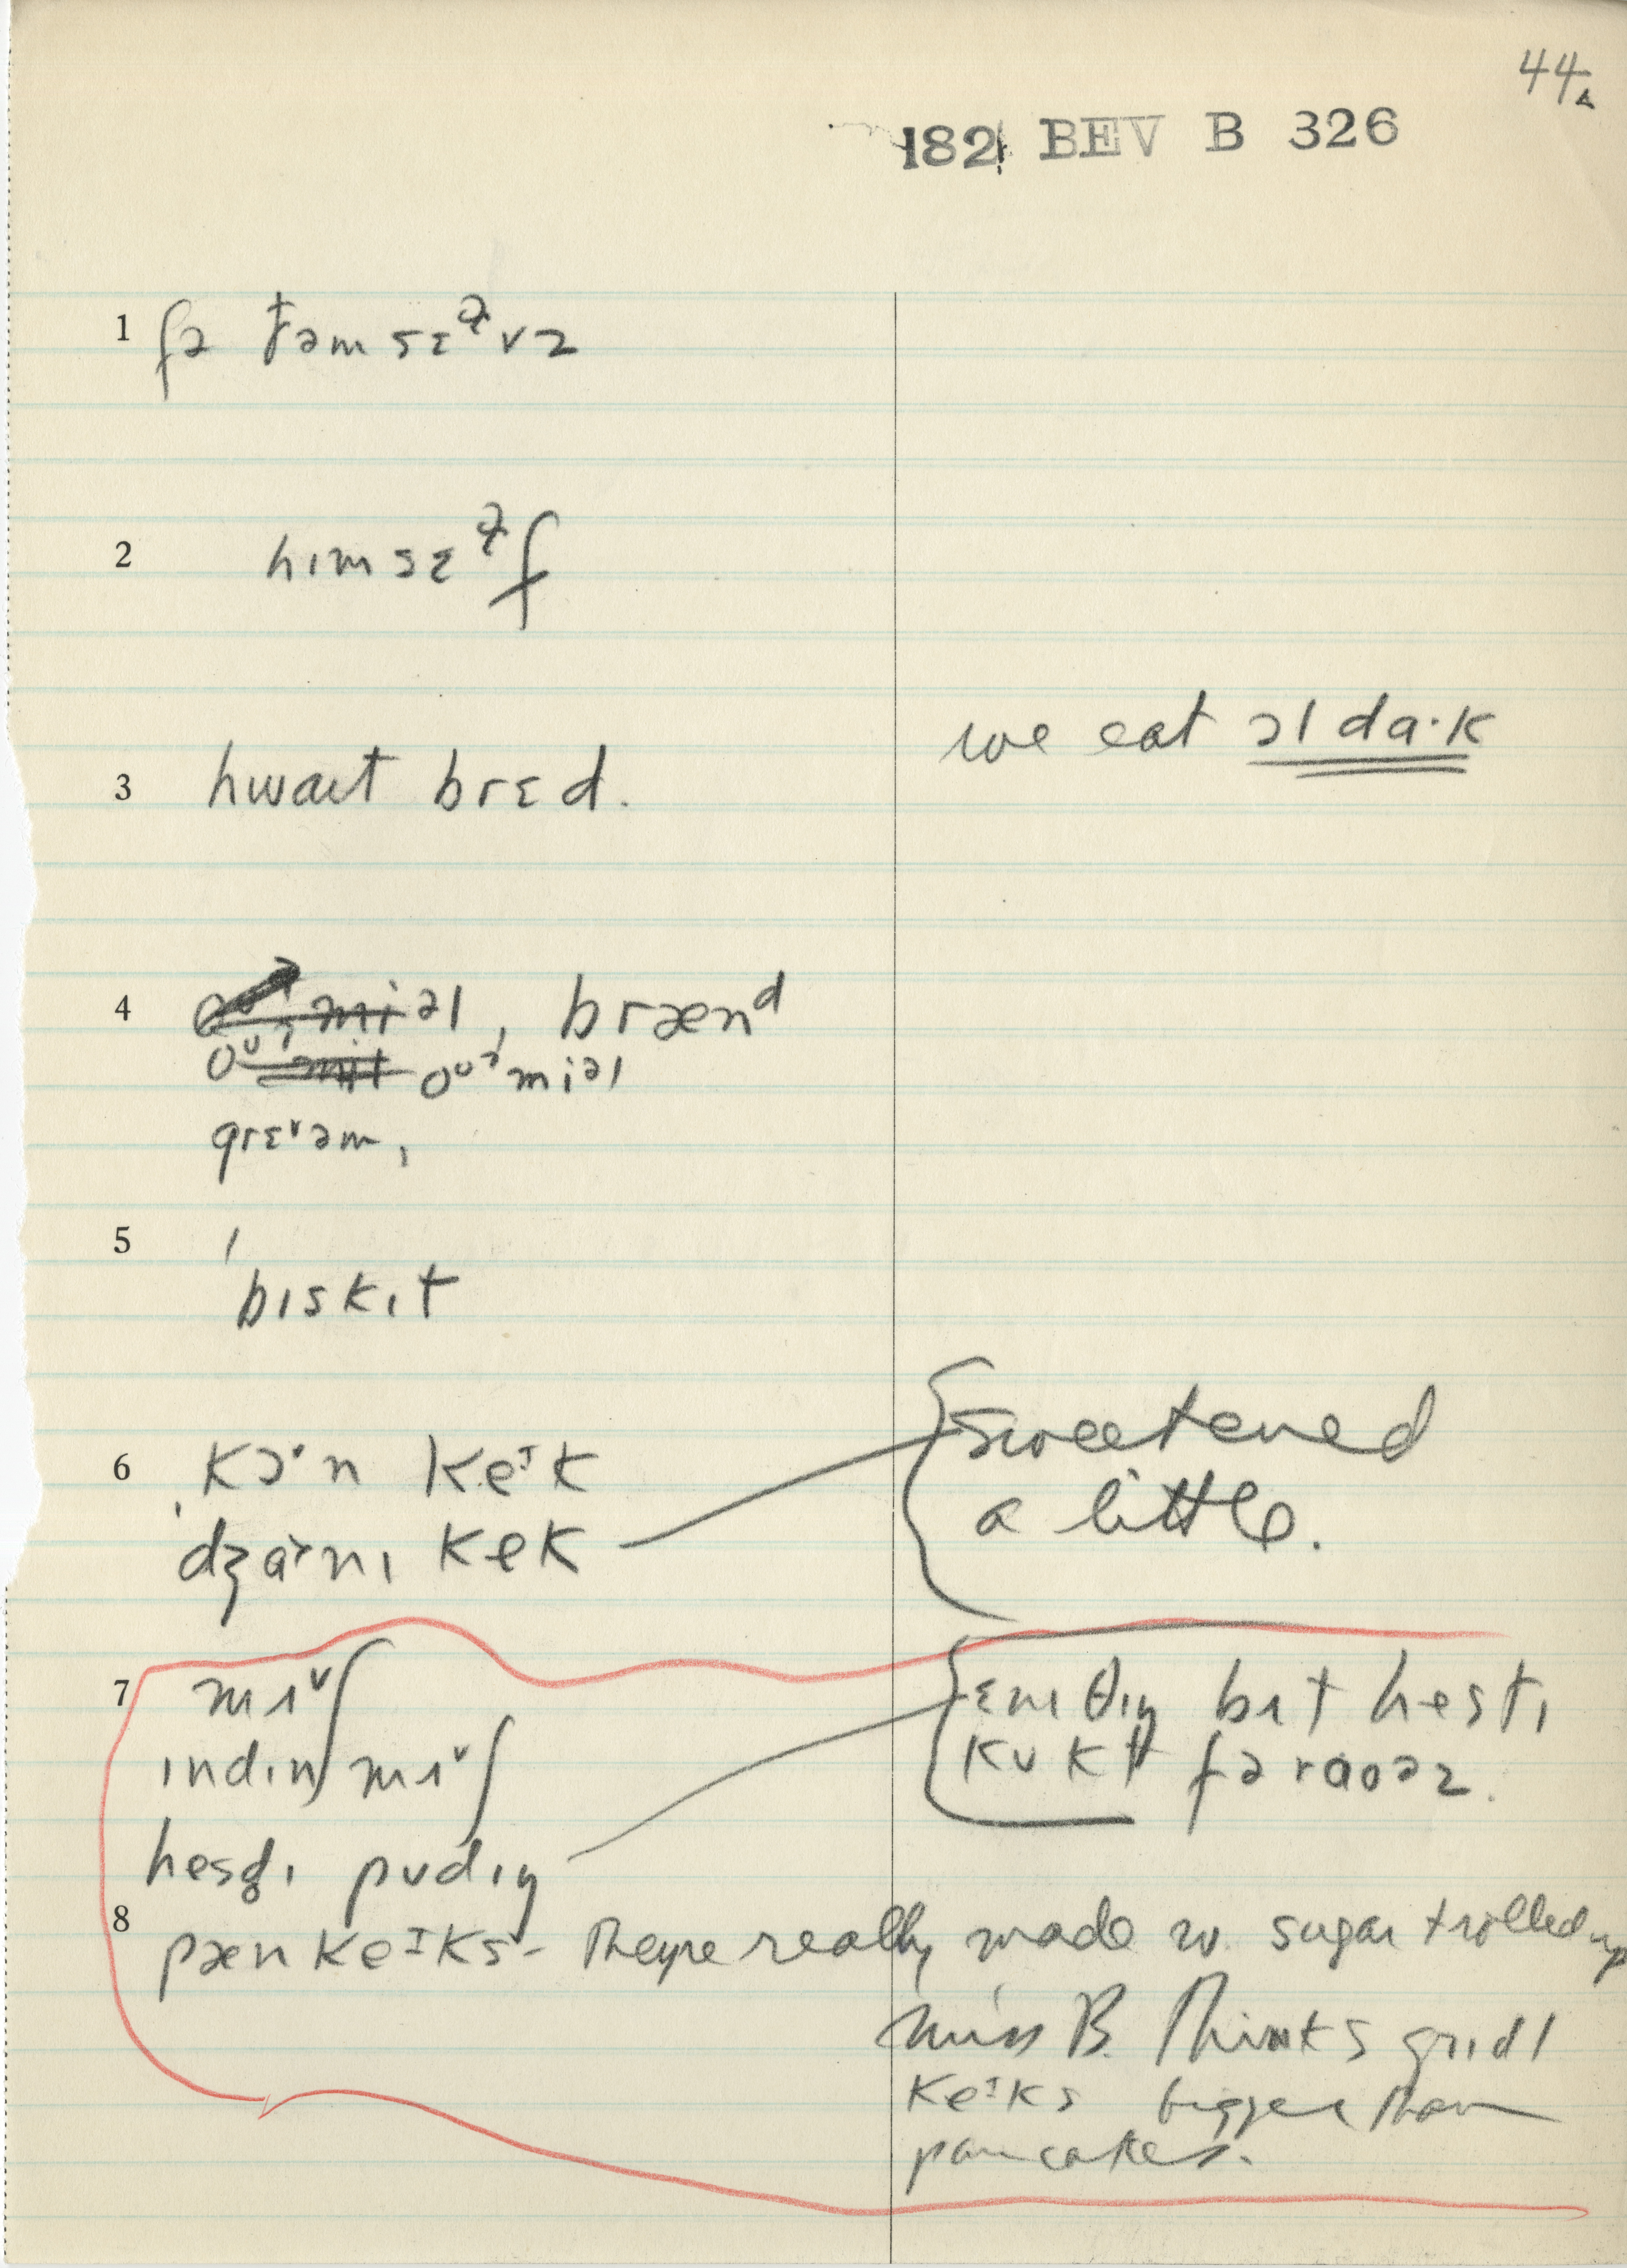 44A
182 BEV B 326
1 fə ðəmsɛᵊvz
2 hɪmsɛᵊf
we eat ɔl da·k
3 hwaɪt brɛd.
4 oᵘˀmiəl, brænᵈ
oᵘˀmil oᵘˀmiəl
greɪəm,
5 'bɪskɪt
6 kɔ˞n keᴵk
ˌdʒɑ˞nɪ kek
sweetened
a little.
7 mʌ˅ʃ
ɪndɪn mʌ˅ʃ
hesd̥ɪ pʊdɪŋ
ɛnɪ θɪŋ bʌt hestɪ
kʊkt fər aʊəz.
8 pænkeᴵks - they're really made w. sugar + rolled up
Miss B. thinks grɪdl
keᴵks bigger than
pancakes.